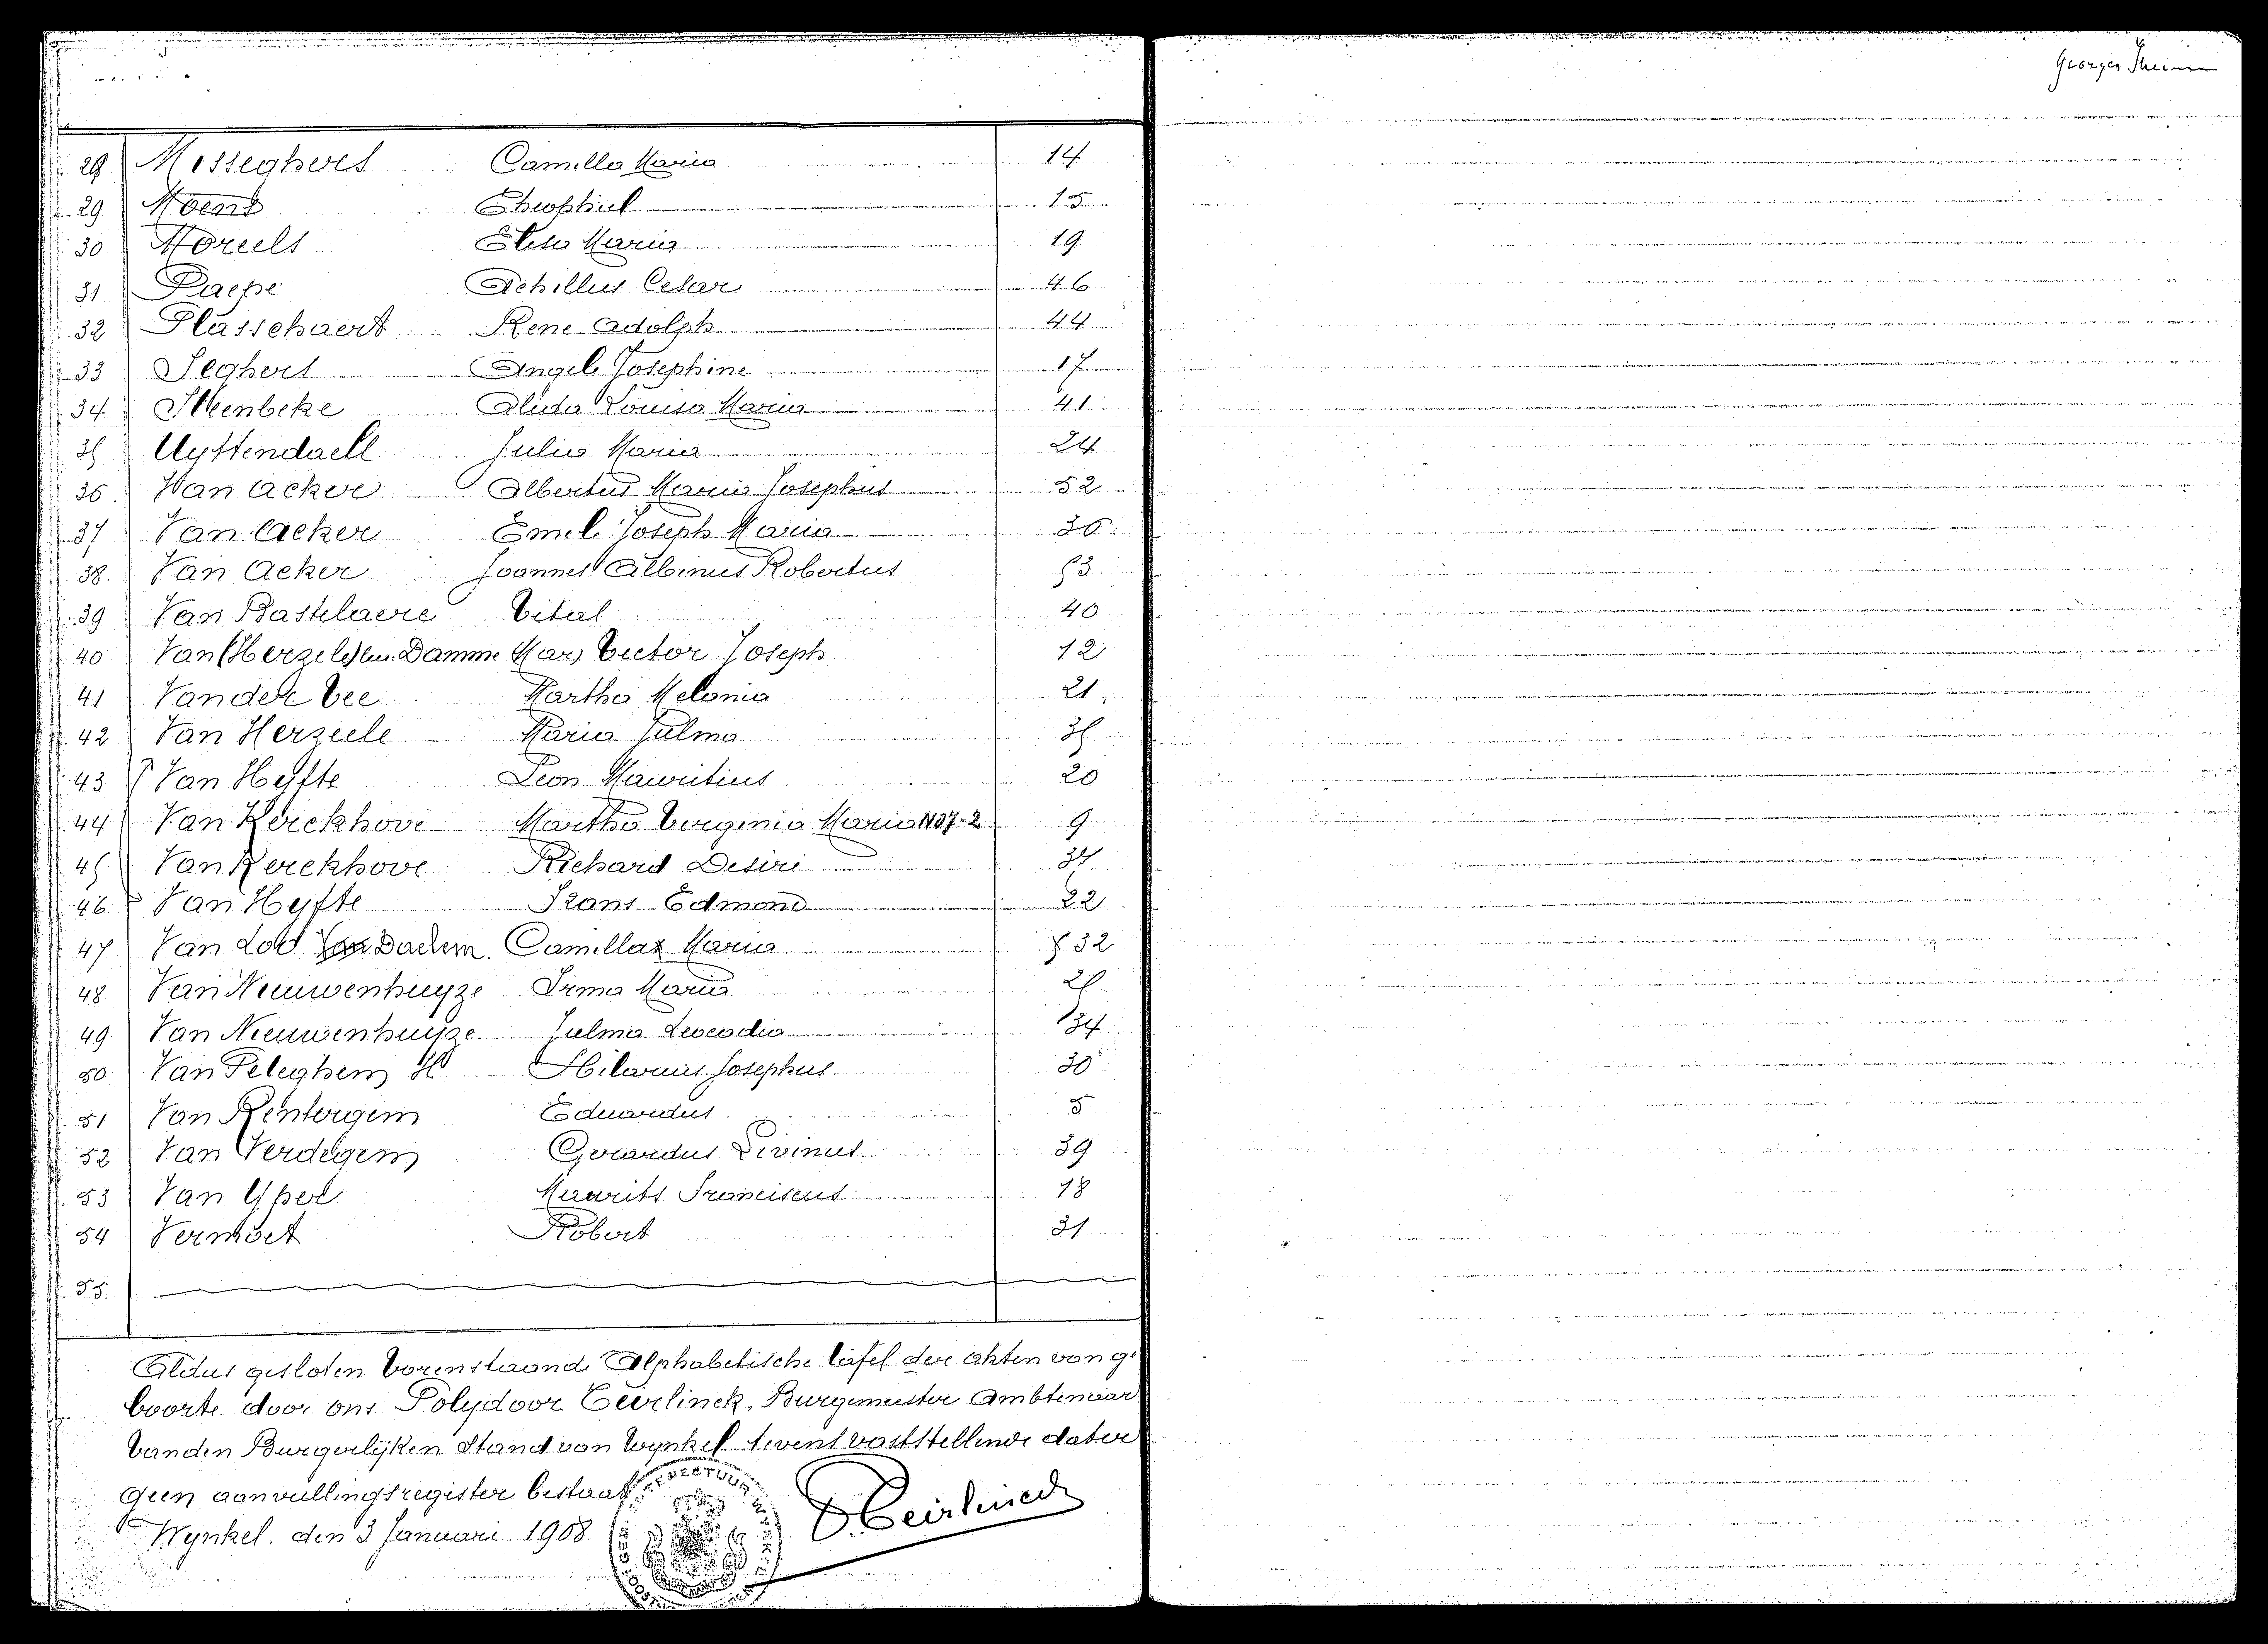 Georges
29 Messeghers Camilla Maria 14
29 Moens Theophiel 15
30 Moreels Elisa Maria 19
31 Paepe Achilles Cesar 46
32 Plasschaert Rene Adolph 44
33 Seghers Angele Josephine 17
34 Steenbeke Alida Louisa Maria 41
35 Uyttendaele Julia Maria 24
36 Van Acker Albertus Maria Josephus 52
37 Van Acker Emile Joseph Maria 36
38 Van Acker Joannes Albinus Robertus 53
39 Van Bastelaere Vital 40
40 Van (Herzele) Damme Mar) Victor Joseph 12
41 Vander Vee Martha Melania 21
42 Van Herzeele Maria Zulma 35
43 Van Hyfte Leon Mauritius 20
44 Van Kerckhove Martha Virginia Maria 1907-2 9
45 Van Kerckhove Richard Desiré 37
46 Van Hyfte Frans Edmond 22
47 Van Loo Camilla Maria 32
48 Van Nieuwenhuyze Irma Maria 25
49 Van Nieuwenhuyze Zulma Leocadia 34
50 Van Peteghem H Hilarius Josephus 30
51 Van Renterghem Eduardus 5
52 Van Verdegem Gerardus Livinus 39
53 Van Yper Maurits Franciscus 18
54 Vermoet Robert 31
55
Aldus gesloten vorenstaande Alphabetische tafel der akten van ge
boorte door ons Polydoor Teirlinck, Burgemeester Ambtenaar
van den Burgerlijken Stand van Wynkel tevens vaststellende dat er
geen aanvullingsregister bestaat
Wynkel, den 3 Januari 1908
P. Teirlinck